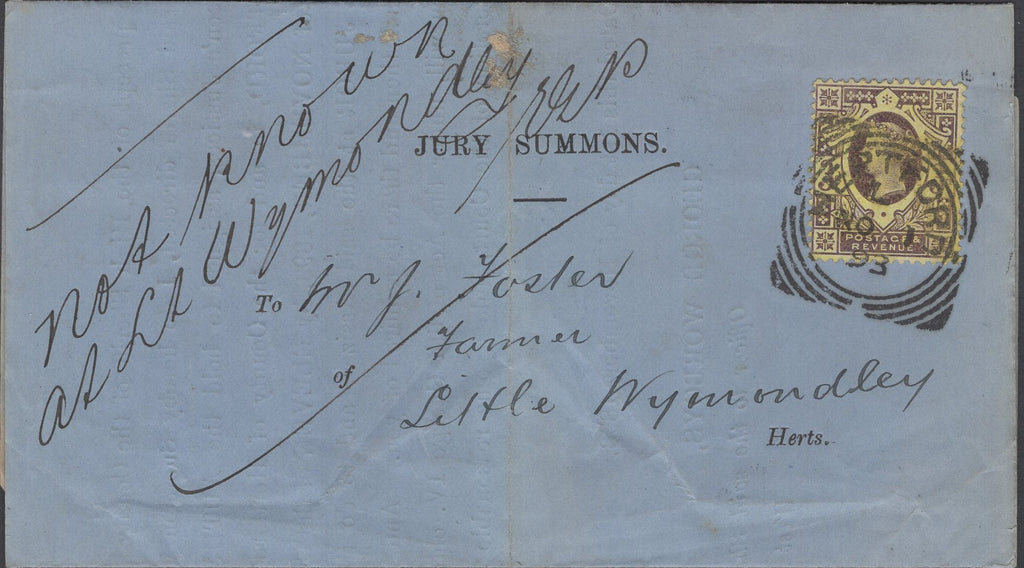 Not Known
at Lt Wymondley
JURY SUMMONS.
To Mr J. Foster
Farmer
of Little Wymondley
Herts.
POSTAGE &
REVENUE
NO 1
93